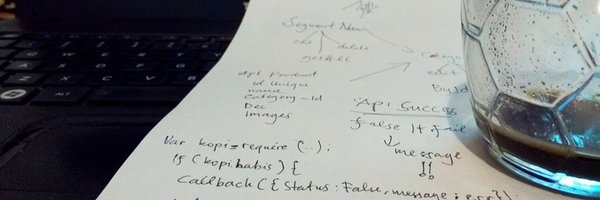 Segment New
edit delete
getAll
Categ
edit
ById
Api Product
id unique
name
category-id
Dec
Images
Api Success
false |+ fail
message
!!
Var kopi = require (..);
If (kopi.habis) {
Callback ({ Status : False, message : err});